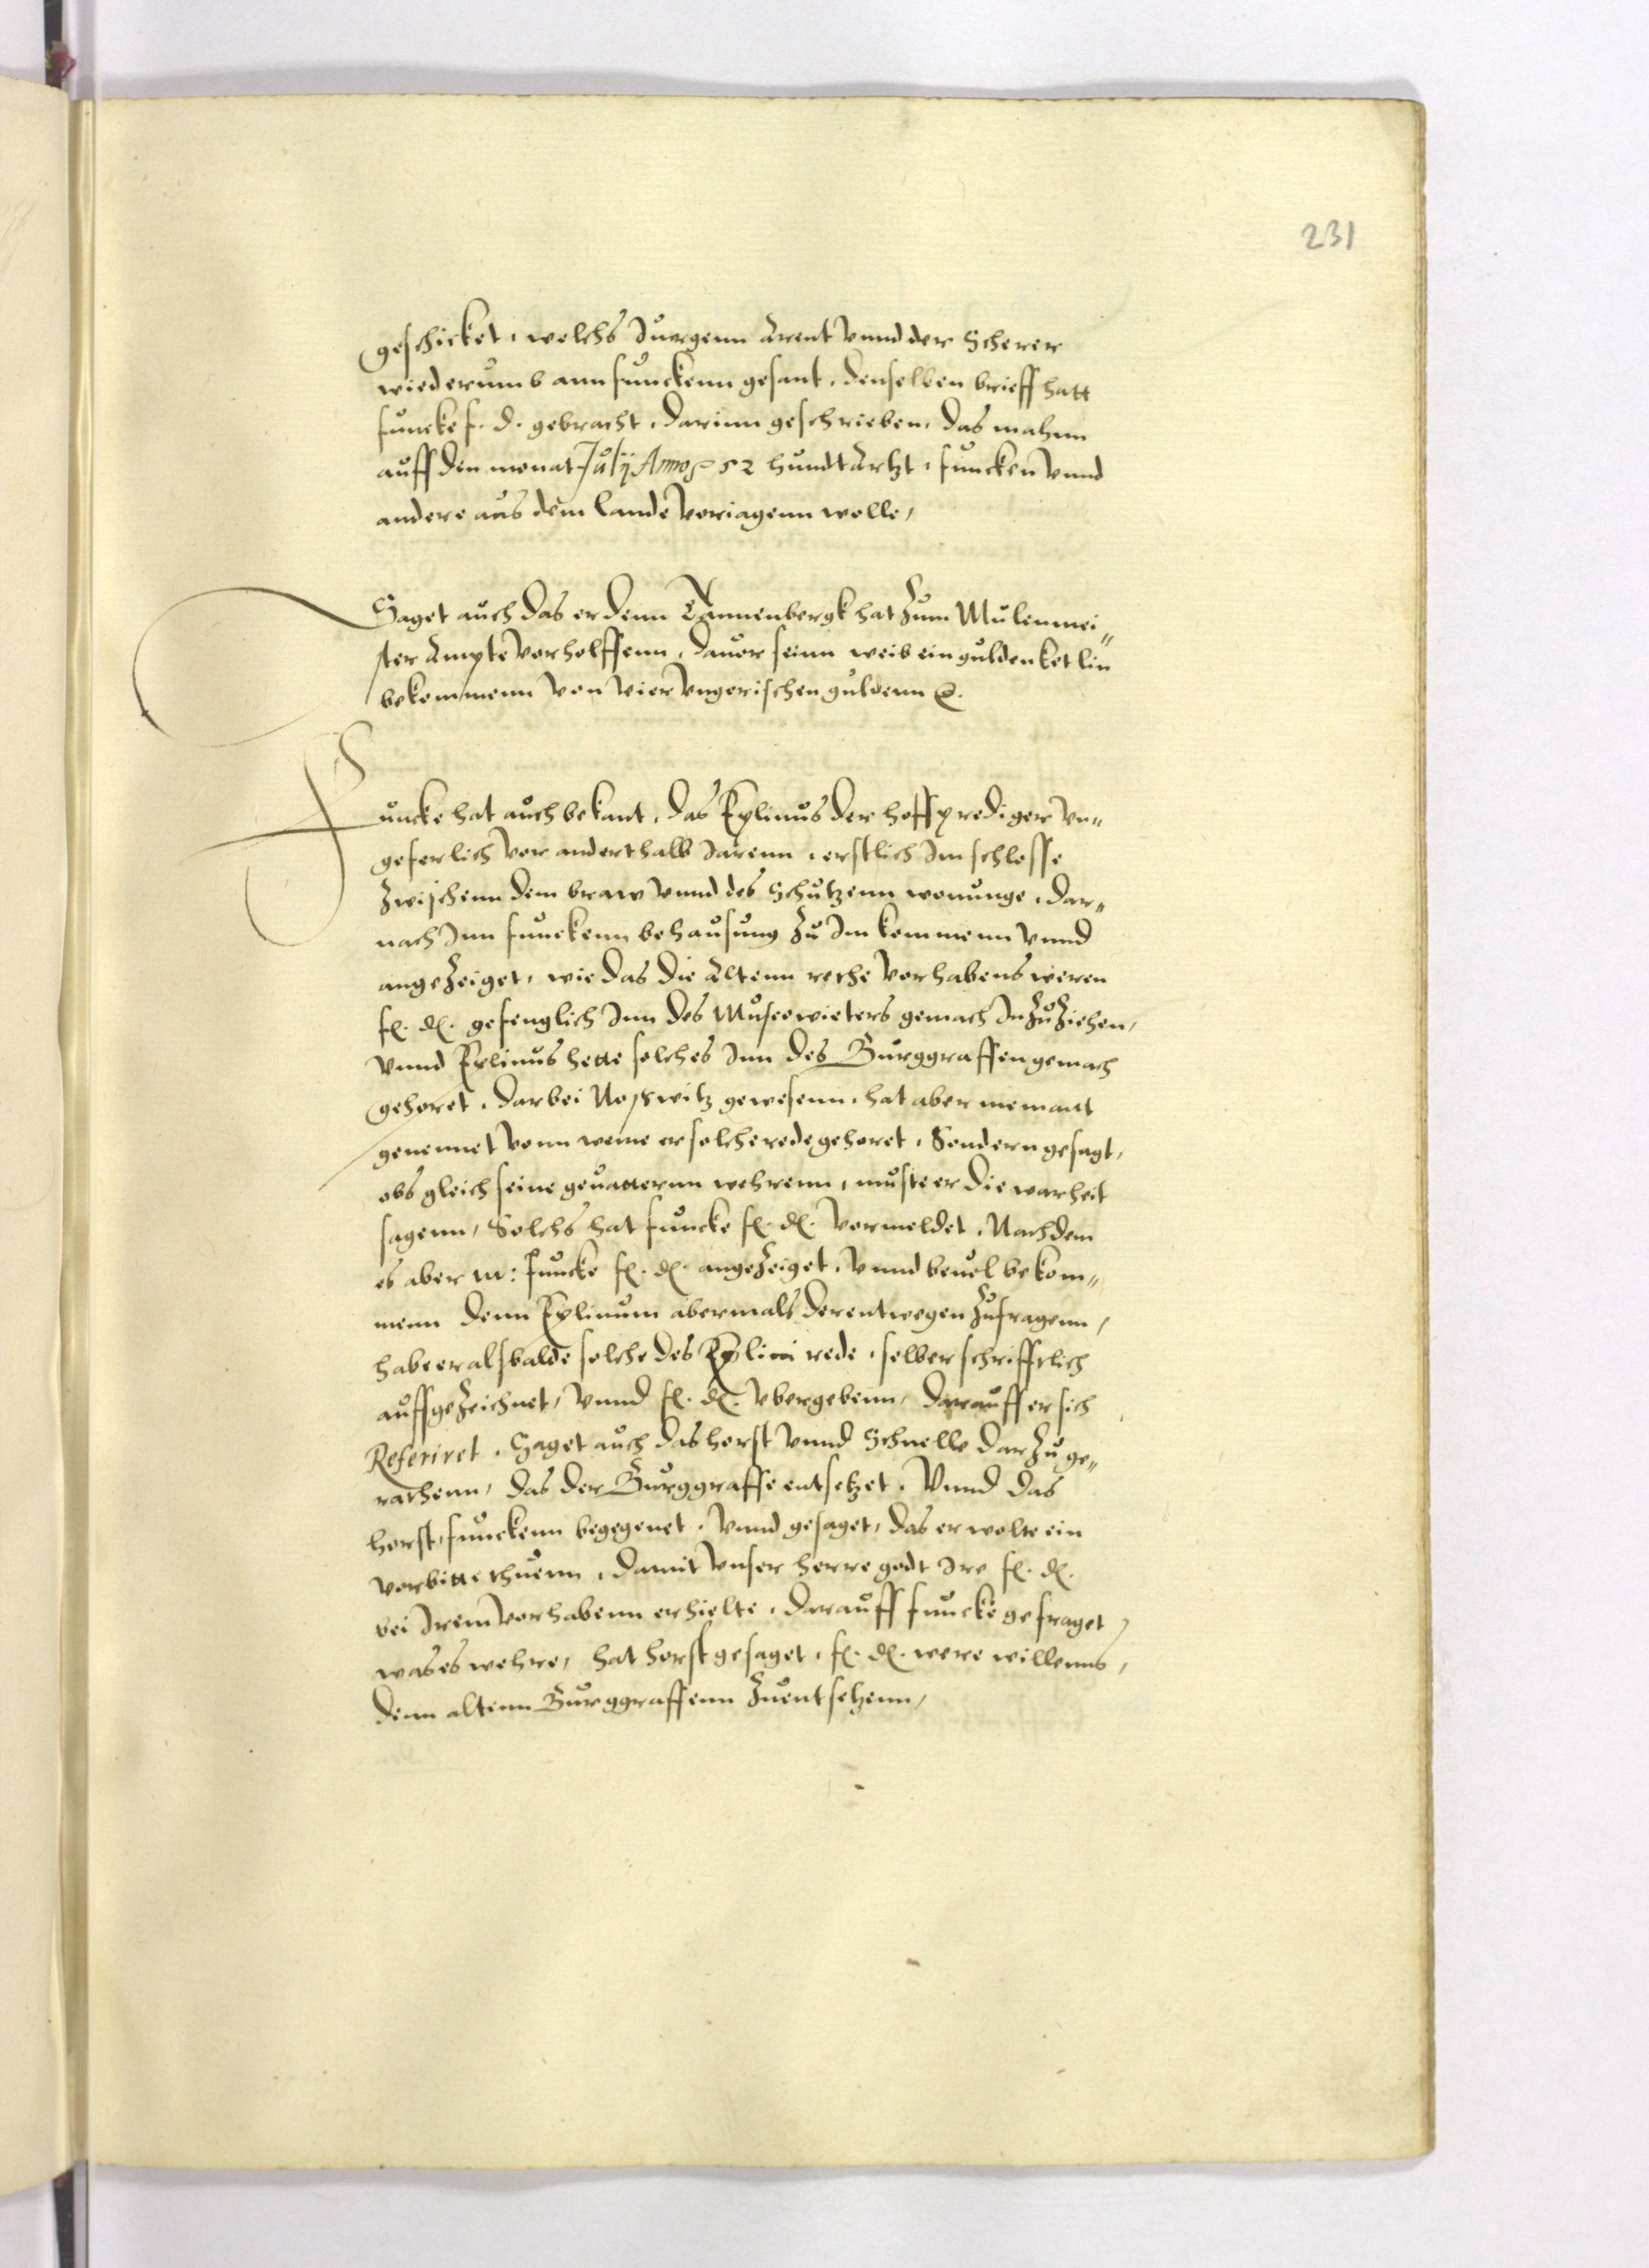 231
geschicket, welchs Jurgenn Arent vnnd der Scherer
wiederumb ann Funckenn gesant, denselben brieff hatt
Funcke f. d. gebracht, darinn geschrieben, das mahnn
auff den monat Julij Anno 52 hundt Artzt, Funcken vnnd
andere aus dem lande veriagenn wolle,
Saget auch das er denn Tannenbergk hat zum Mulenmei"
ster Ampte verholffenn, dauor seinn weib ein gulden ketlin
bekommenn von vier vngerischen guldenn
Funcke hat auch bekant, das Eylinus der hoffprediger vn"
geferlich vor anderthalb Jarenn, erstlich Im schlosse
zwischenn dem braw vnnd des Schutzenn wonunge, dar"
nach Inn Funckenn behausung zu Im kommenn vnnd
angezeiget, wie das die Altenn rethe vorhabens weren
f. d. gefenglich Inn des gemach Inzuziehen,
vnnd Eylinus hette solches Inn des Burggraffen gemach
gehoret, darbei Nostwitz gewesenn, hat aber niemant
genennet vonn weme er solche rede gehoret, Sondern gesagt,
obs gleich seine geuatternn wehrenn, muste er die warheit
sagenn, Solchs hat Funcke f. d. vermeldet, Nachdem
es aber m: Funcke f. d. angezeiget, vnnd beuel bekom"
menn denn Eylinum abermals derentwegen zufragenn,
habe er alsbalde solche des Eylini rede, selber schrifftlich
auffgezeichnet, vnnd f. d. vbergebenn, darauff er sich
Referiret. Saget auch das Horst vnnd Schnelle darzu ge"
rathenn, das der Burggraffe entsetzet. Vnnd das
Horst, Funckenn begegenet, vnnd gesaget, das er wolte ein
vorbitte thuenn, damit vnser herre godt Ire f. d.
bei Irem vorhabenn erhielte, darauff Funcke gefraget
was es wehre, hat Horst gesaget, f. d. were willenns,
denn altenn Burggraffenn zuentsetzenn,